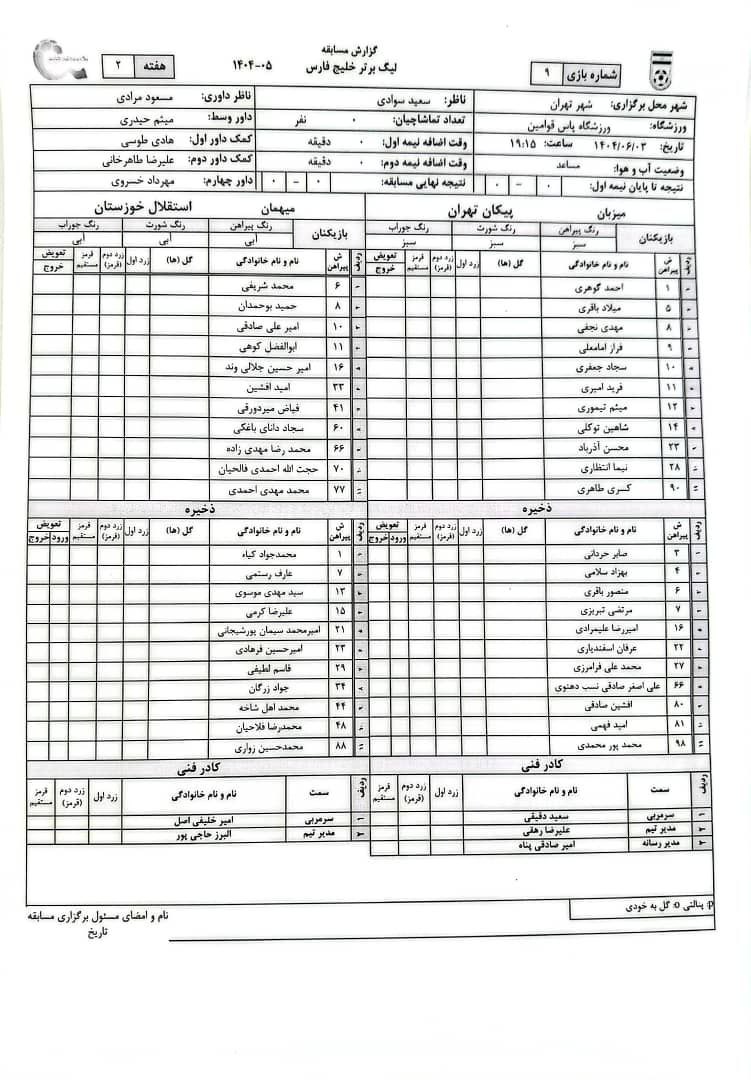 گزارش مسابقه
لیگ برتر خلیج فارس ۰۵-۱۴۰۴
شماره بازی ۹
هفته ۲
شهر محل برگزاری: شهر تهران
ورزشگاه: ورزشگاه پاس قوامین
تاریخ: ۱۴۰۴/۰۶/۰۳ ساعت: ۱۹:۱۵
وضعیت آب و هوا: مساعد
نتیجه تا پایان نیمه اول: ۰ - ۰
ناظر: سعید سوادی
تعداد تماشاچیان: ۰ نفر
وقت اضافه نیمه اول: ۰ دقیقه
وقت اضافه نیمه دوم: ۰ دقیقه
نتیجه نهایی مسابقه: ۰ - ۰
ناظر داوری: مسعود مرادی
داور وسط: میثم حیدری
کمک داور اول: هادی طوسی
کمک داور دوم: علیرضا طاهرخانی
داور چهارم: مهرداد خسروی
میزبان پیکان تهران
بازیکنان رنگ پیراهن رنگ شورت رنگ جوراب
سبز سبز سبز
ردیف ش پیراهن نام و نام خانوادگی گل (ها) زرد اول زرد دوم (قرمز) قرمز مستقیم تعویض خروج
۱ احمد گوهری
۵ میلاد باقری
۸ مهدی نجفی
۹ فراز امامعلی
۱۰ سجاد جعفری
۱۱ فرید امیری
۱۲ میثم تیموری
۱۴ شاهین توکلی
۲۳ محسن آذرباد
۲۸ نیما انتظاری
۹۰ کسری طاهری
ذخیره
ردیف ش پیراهن نام و نام خانوادگی گل (ها) زرد اول زرد دوم (قرمز) قرمز مستقیم تعویض ورود خروج
۳ صابر حردانی
۴ بهزاد سلامی
۶ منصور باقری
۷ مرتضی تبریزی
۱۶ امیررضا علیمرادی
۲۲ عرفان اسفندیاری
۲۷ محمد علی فرامرزی
۶۶ علی اصغر صادقی نسب دهنوی
۸۰ افشین صادقی
۸۱ امید فهمی
۹۸ محمد پور محمدی
کادر فنی
ردیف سمت نام و نام خانوادگی زرد اول زرد دوم (قرمز) قرمز مستقیم
۱ سرمربی سعید دقیقی
۲ مدیر تیم علیرضا رهقی
۳ مدیر رسانه امیر صادقی پناه
میهمان استقلال خوزستان
بازیکنان رنگ پیراهن رنگ شورت رنگ جوراب
آبی آبی آبی
ردیف ش پیراهن نام و نام خانوادگی گل (ها) زرد اول زرد دوم (قرمز) قرمز مستقیم تعویض خروج
۶ محمد شریفی
۸ حمید بوحمدان
۱۰ امیر علی صادقی
۱۱ ابوالفضل کوهی
۱۶ امیر حسین جلالی وند
۳۳ امید افشین
۴۱ فیاض میردورقی
۶۰ سجاد دانای باغکی
۶۶ محمد رضا مهدی زاده
۷۰ حجت الله احمدی فالحیان
۷۷ محمد مهدی احمدی
ذخیره
ردیف ش پیراهن نام و نام خانوادگی گل (ها) زرد اول زرد دوم (قرمز) قرمز مستقیم تعویض ورود خروج
۱ محمدجواد کیاه
۷ عارف رستمی
۱۳ سید مهدی موسوی
۱۵ علیرضا کرمی
۲۱ امیرمحمد سیمان پورشیجانی
۲۳ امیرحسین فرهادی
۲۹ قاسم لطیفی
۳۴ جواد زرگان
۴۴ محمد اهل شاخه
۴۸ محمدرضا فلاحیان
۸۸ محمدحسین زواری
کادر فنی
ردیف سمت نام و نام خانوادگی زرد اول زرد دوم (قرمز) قرمز مستقیم
۱ سرمربی امیر خلیفی اصل
۲ مدیر تیم البرز حاجی پور
p: پنالتی o: گل به خودی
نام و امضای مسئول برگزاری مسابقه
تاریخ